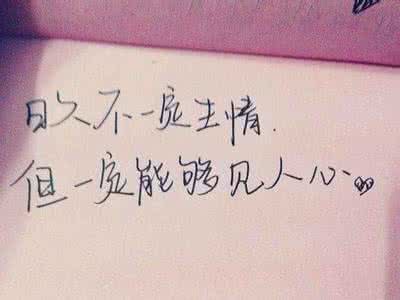 日久不一定生情.
但一定能够见人心..